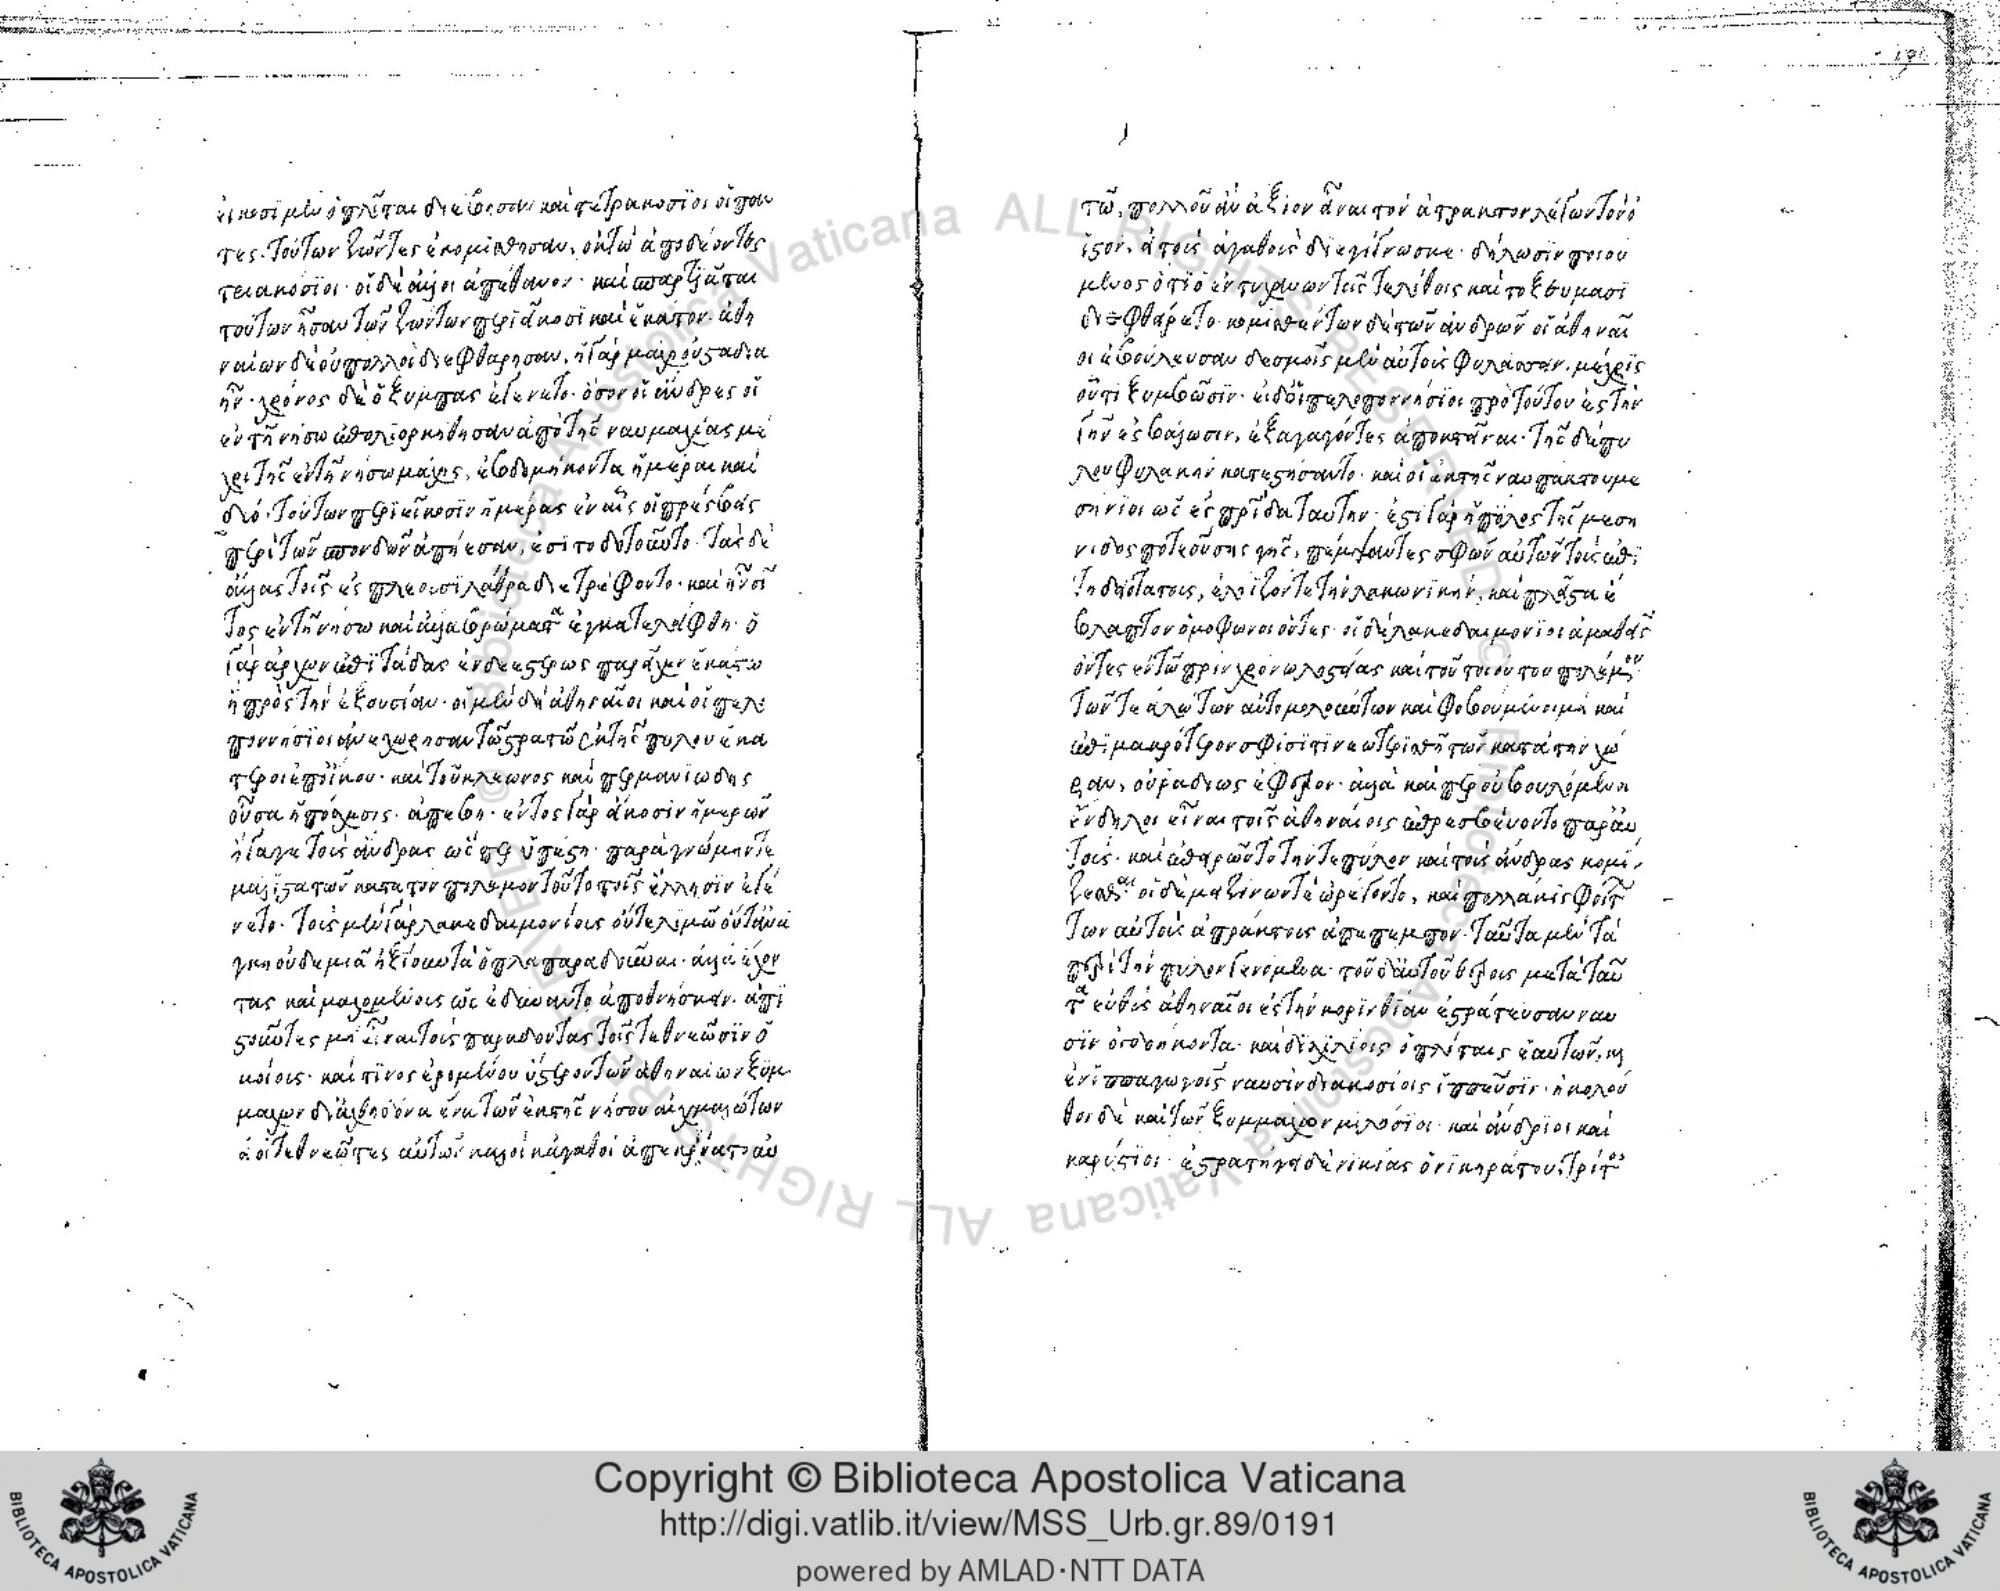 εἴκοσι μὲν ὁπλῖται διέβησαν καὶ τετρακόσϊοι οἱ πάν
τες· τούτων ζῶντες ἐκομίσθησαν, ὀκτὼ ἀποδέοντες
τριακόσϊοι· οἱ δὲ ἄλλοι ἀπέθανον· καὶ σπαρτιᾶται
τούτων ἦσαν τῶν ζώντων περὶ εἴκοσι καὶ ἑκατόν· ἀθη
ναίων δὲ οὐ πολλοὶ διεφθάρησαν, ἡ γὰρ μάχη οὐ σταδία
ἦν· χρόνος δὲ ὁ ξύμπας ἐγένετο· ὅσον οἱ ἄνδρες οἱ
ἐν τῆ νήσω ἐπολιορκήθησαν ἀπὸ τῆς ναυμαχίας μέ
χρι τῆς ἐν τῆ νήσω μάχης, ἑβδομήκοντα ἡμέραι καὶ
δύο· τούτων περὶ εἴκοσϊν ἡμέρας ἐν αἷς οἱ πρέσβεις
περὶ τῶν σπονδῶν ἀπήεσαν, ἐσιτοδοτοῦντο· τὰς δὲ
ἄλλας τοῖς ἐσπλέουσϊ λάθρα διετρέφοντο· καὶ ἦν σῖ
τος ἐν τῆ νήσω καὶ ἄλλα βρώματα ἐγκατελείφθη· ὁ
γὰρ ἄρχων ἐπϊτάδας ἐνδεεστέρως παρεῖχεν ἑκάστω
ἢ πρὸς τὴν ἐξουσίαν· οἱ μὲν δὴ ἀθηναῖοι καὶ οἱ πελο
ποννήσϊοι ἀνεχώρησαν τῶ στρατῶ ἐκ τῆς πύλου ἑκά
τεροι ἐπ' οἴκου· καὶ τοῦ κλέωνος καίπερ μανιώδης
οὖσα ἡ ὑπόσχεσις· ἀπέβη· ἐντὸς γὰρ εἴκοσιν ἡμερῶν
ἤγαγε τοὺς ἄνδρας ὥσπερ ὑπέστη· παρὰ γνώμην τε
μάλϊστα τῶν κατὰ τὸν πόλεμον τοῦτο τοῖς ἕλλησϊν ἐγέ
νετο· τοὺς μὲν γὰρ λακεδαιμονίους οὔτε λιμῶ οὔτ' ἀνά
γκη οὐδεμιᾶ ἠξίουν τὰ ὅπλα παραδοῦναι· ἀλλὰ ἔχον
τας καὶ μαχομένους ὡς ἐδύναντο ἀποθνήσκειν· ἀπϊ
στοῦντες μὴ εἶναι τοὺς παραδόντας τοῖς τεθνεῶσϊν ὁ
μοίους· καί τϊνος ἐρομένου ὕστερον τῶν ἀθηναίων ξυμ
μάχων δι' ἀχθηδόνα ἕνα τῶν ἐκ τῆς νήσου αἰχμαλώτων
εἰ οἱ τεθνεῶτες αὐτῶν καλοὶ κἀγαθοὶ ἀπεκρίνατο αὐ
τῶ, πολλοῦ ἂν ἄξιον εἶναι τὸν ἄτρακτον λέγων τὸν ὀ
ϊστὸν, εἰ τοὺς ἀγαθοὺς διεγίγνωσκε· δήλωσϊν ποιού
μενος ὅτϊ ὁ ἐντυγχάνων τοῖς τε λίθοις καὶ τοξεύμασϊ
διεφθείρετο· κομισθέντων δὲ τῶν ἀνδρῶν οἱ ἀθηναῖ
οι ἐβούλευσαν δεσμοῖς μὲν αὐτοὺς φυλάσσειν, μέχρϊς
οὗ τι ξυμβῶσϊν· εἰ δ' οἱ πελοποννήσϊοι πρὸ τούτου ἐς τὴν
γῆν ἐσβάλωσιν, ἐξαγαγόντες ἀποκτεῖναι· τῆς δὲ πύ
λου φυλακὴν κατεστήσαντο· καὶ οἱ ἐκ τῆς ναυπάκτου με
σήνϊοι ὡς ἐς πατρίδα ταύτην· ἔστι γὰρ ἡ πύλος τῆς μεση
νίδος ποτὲ οὔσης γῆς, πέμψαντες σφῶν αὐτῶν τοὺς ἐπϊ
τηδειοτάτους, ἐληΐζοντο τὴν λακωνϊκὴν, καὶ πλεῖστα ἔ
βλαπτον ὁμόφωνοι ὄντες· οἱ δὲ λακεδαιμονϊοι ἀμαθεῖς
ὄντες ἐν τῶ πρὶν χρόνω ληστείας καὶ τοῦ τοιούτου πολέμου
τῶν τε εἱλώτων αὐτομολούντων καὶ φοβούμενοι μὴ καὶ
ἐπὶ μακρότερον σφίσϊ τι νεωτερισθῆ τῶν κατὰ τὴν χώ
ραν, οὐ ῥαδίως ἔφερον· ἀλλὰ καίπερ οὐ βουλόμενοι
ἔνδηλοι εἶναι τοῖς ἀθηναίοις ἐπρεσβεύοντο παρ' αὐ
τοὺς· καὶ ἐπειρῶντο τήν τε πύλον καὶ τοὺς ἄνδρας κομί
ζεσθαι οἱ δὲ μειζόνων τε ὠρέγοντο, καὶ πολλάκις φοιτών
των αὐτοὺς ἀπράκτους ἀπέπεμπον· ταῦτα μὲν τὰ
περὶ τὴν πύλον γενόμενα· τοῦ δ' αὐτοῦ θέρους μετὰ ταῦ
τα εὐθὺς ἀθηναῖοι ἐς τὴν κορινθίαν ἐστράτευσαν ναυ
σὶν ὀγδοήκοντα· καὶ δϊσχιλίοις ὁπλίταις ἑαυτῶν, καὶ
ἐν ἱππαγωγοῖς ναυσὶν διακοσίοις ἱππεῦσϊν· ἠκολού
θουν δὲ καὶ τῶν ξυμμάχων μιλήσϊοι· καὶ ἄνδριοι καὶ
καρύστϊοι· ἐστρατήγει δὲ νικίας ὁ νικηράτου, τρίτος
Copyright © Biblioteca Apostolica Vaticana
http://digi.vatlib.it/view/MSS_Urb.gr.89/0191
powered by AMLAD·NTT DATA